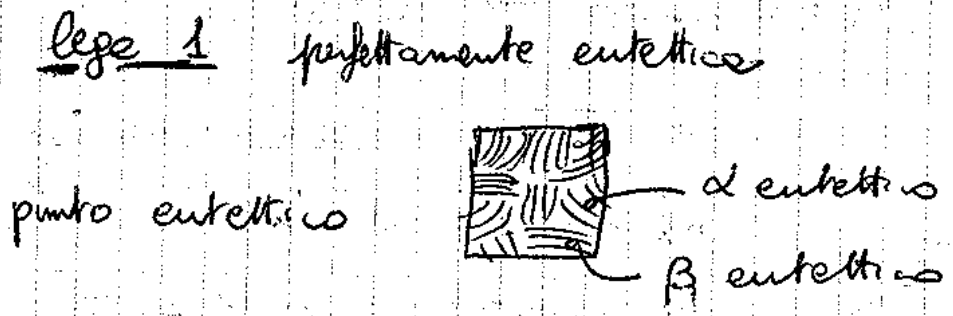 lega 1 perfettamente eutettica
α eutettico
punto eutettico
β eutettico